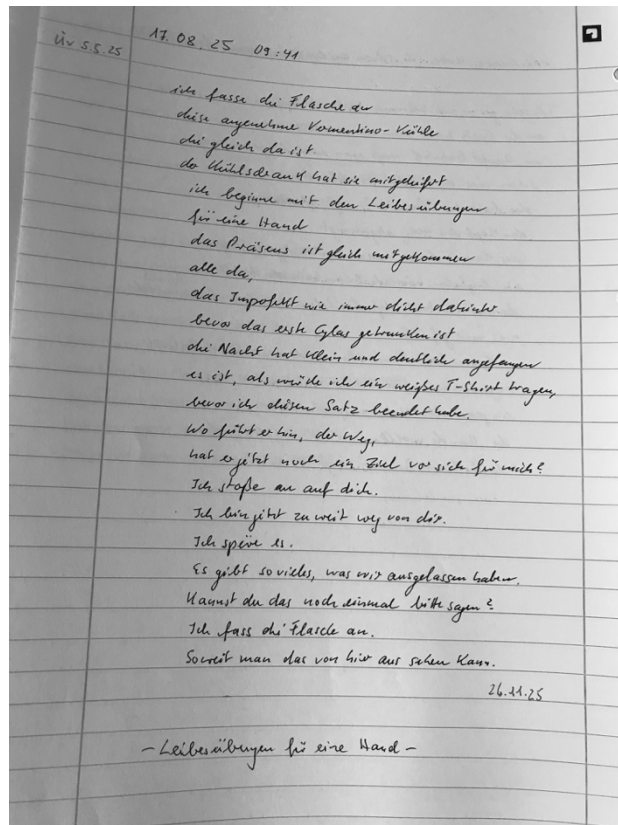 Üv 5.5.25
17.08.25 09:41
ich fasse die Flasche an
diese angenehme Vermentino-Kühle
die gleich da ist
der Kühlschrank hat sie mitgeliefert
ich beginne mit den Leibesübungen
für eine Hand
das Präsens ist gleich mitgekommen
alle da,
das Imperfekt wie immer dicht dahinter
bevor das erste Glas getrunken ist
die Nacht hat klein und deutlich angefangen
es ist, als würde ich ein weißes T-Shirt tragen,
bevor ich diesen Satz beendet habe.
Wo führt er hin, der Weg,
hat er jetzt noch ein Ziel vor sich für mich?
Ich stoße an auf dich.
Ich bin jetzt zu weit weg von dir.
Ich spüre es.
Es gibt so vieles, was wir ausgelassen haben.
Kannst du das noch einmal bitte sagen?
Ich fass die Flasche an.
Soweit man das von hier aus sehen kann.
26.11.25
- Leibesübungen für eine Hand -